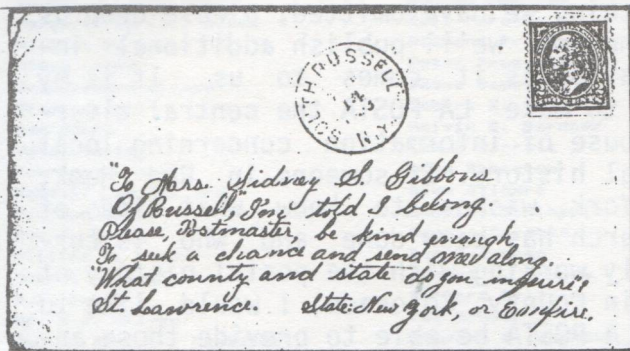 SOUTH RUSSELL
N.Y.
"To Mrs. Sidney S. Gibbons
Of Russell," I'm told I belong.
Please, Postmaster, be kind enough,
To seek a chance and send me along.
"What county and state do you inquire?
St. Lawrence. State: New York, or Empire.